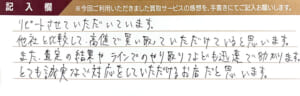 記入欄 ※今回ご利用いただきました買取サービスの感想を、手書きにてご記入お願いします。
リピートさせていただいています。
他社と比較して高値で買い取っていただけていると思います。
また、査定の結果やラインでのやり取りなども迅速で助かります。
とても誠実なご対応をしていただけるお店だと思います。